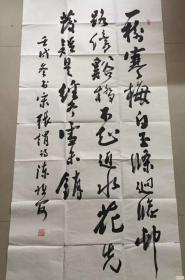 一樹寒梅白玉條迥臨邨
路傍谿橋不知近水花先
發疑是經冬雪未銷
壬戌冬書宋張謂詩陳